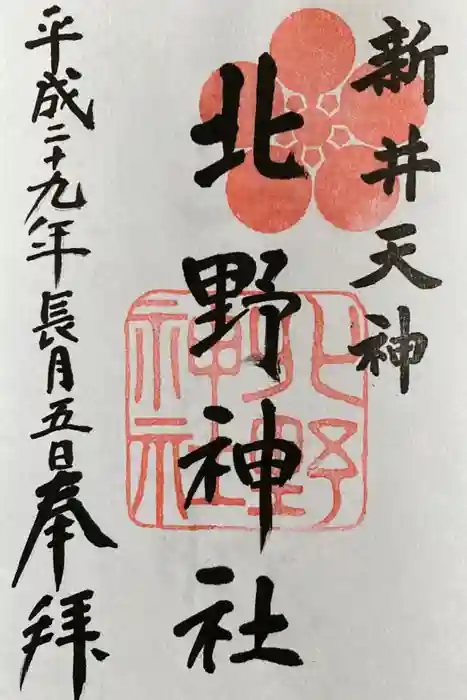 新井天神
北野神社
平成二十九年長月五日奉拝
北野
神社